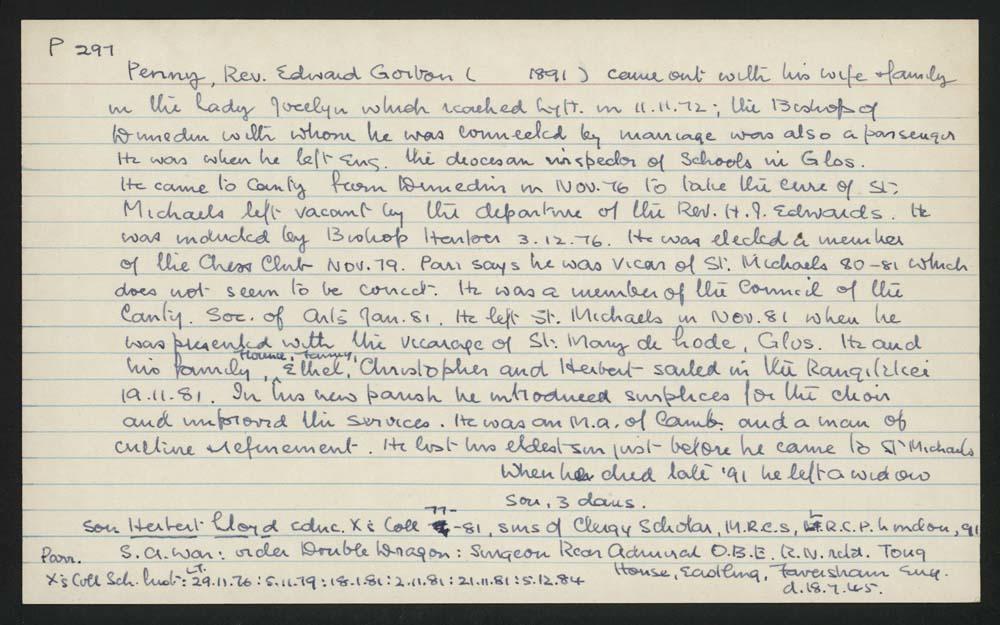 P 297
Penny, Rev. Edward Gorton ( 1891) came out with his wife & family
in the Lady Jocelyn which reached Lytt. in 11.11.72; the Bishop of
Dunedin with whom he was connected by marriage was also a passenger
He was when he left Eng. the diocesan inspector of Schools in Glos.
He came to Canty from Dunedin in Nov. 76 to take the cure of St.
Michaels left vacant by the departure of the Rev. H.J. Edwards. He
was inducted by Bishop Harper 3.12.76. He was elected a member
of the Chess Club Nov. 79. Parr says he was Vicar of St. Michaels 80-81 which
does not seem to be correct. He was a member of the Council of the
Canty. Soc. of Arts Jan. 81. He left St. Michaels in Nov. 81 when he
was presented with the vicarage of St. Mary de Lode, Glos. He and
his family, Ethel, Christopher and Herbert sailed in the Rangitikei
19.11.81. In his new parish he introduced surplices for the choir
and improved the services. He was an M.A. of Camb. and a man of
culture & refinement. He lost his eldest son just before he came to St Michaels
When he died late '91 he left a widow
son, 3 daus.
son Herbert Lloyd educ. X's Coll 77-81, sms of Clergy Scholar, M.R.C.S, L.R.C.P. London, 91
S.A. War: order Double Dragon: Surgeon Rear Admiral O.B.E. R.N. retd. Tong
House, Eastling, Faversham Eng.
d.18.7.45.
Parr.
X's Coll Sch. List: LT. 29.11.76: 5.11.79: 18.1.81: 2.11.81: 21.11.81: 5.12.84